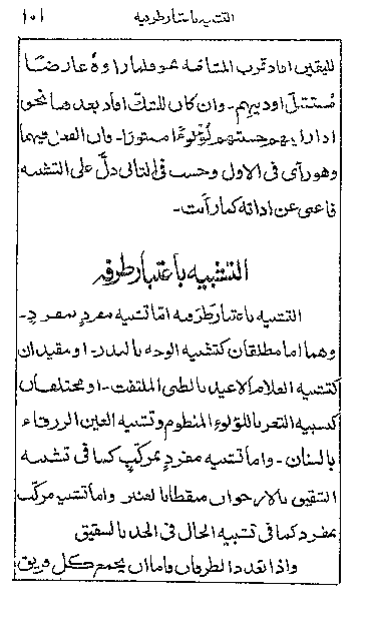 التشبيه باعتبار طرفيه ١٥١
لليقين افاد قرب المشابهة نحو فلما رأوه عارضًا
مُستقبلَ اوديتهم ـ وان كان للشك افاد بعدها نحو
اذا رأيتهم حسبتهم لؤلؤًا منثورًا ـ وان الفعل فيهما
وهو رأى في الاول وحسب في التالى دلّ على التشبيه
فاغنى عن اداته كما رأيت ـ
التشبيه باعتبار طرفيه
التشبيه باعتبار طَرَفيه امّا تشبيه مفردٍ بمفردٍ ـ
وهما اما مطلقان كتشبيه الوجه بالبدر ـ او مقيدان
كتشبيه الغلام الاغيد بالظبى الملتفت ـ او مختلفان
كتشبيه الثغر باللؤلوءِ المنظوم وتشبيه العين الزرقاء
بالسنان ـ واما تشبيه مفردٍ بمركّبٍ كما فى تشبيه
الشقيق بالارجوان منقطا بالعنبر واما تشبيه مركّب
بمفرد كما فى تشبيه الخال فى الخد بالشقيق
واذا تعدد الطرفان فاما ان يجمع كل فريق